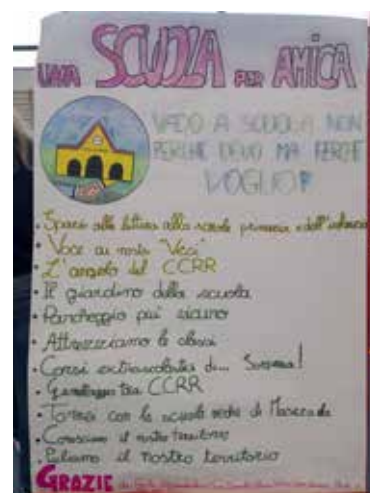 UNA SCUOLA PER AMICA
VADO A SCUOLA NON
PERCHÈ DEVO MA PERCHÈ
VOGLIO!
• Spazio alla lettura alla scuola primaria e dell'infanzia
• Voce ai nostri "Veci"
• L'angolo del CCRR
• Il giardino della scuola
• Parcheggio più sicuro
• Attrezziamo le classi
• Corsi extrascolastici di... Sorpresa!
• Gemellaggio tra CCRR
• Torneo con le scuole medie di Maserada
• Conosciamo il nostro territorio
• Puliamo il nostro territorio
GRAZIE